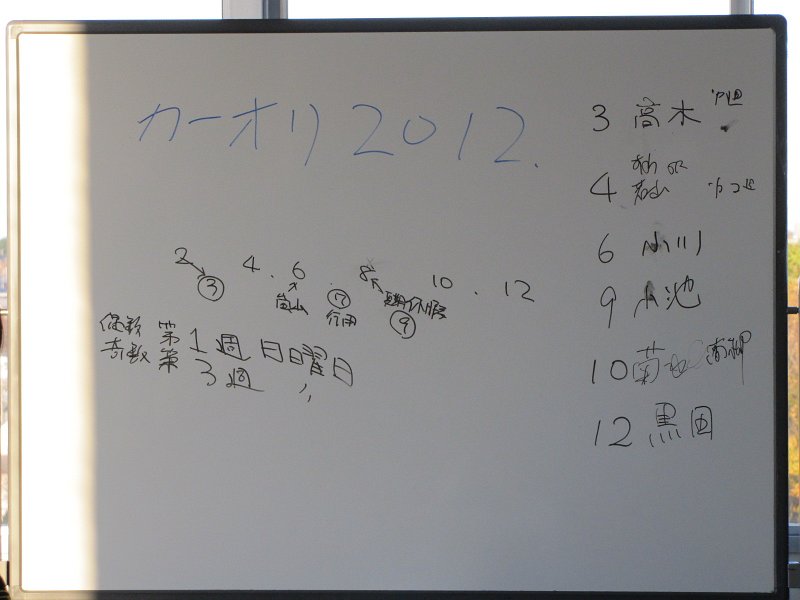 カーオリ2012.
2 4 . 6 . 8 10 . 12
③ 嵐山 ⑦ 夏期休暇
⑨
偶数 第1週 日曜日
奇数 第3週 〃
3 高木
4
6 小川
9 小池
10 菊
12 黒田